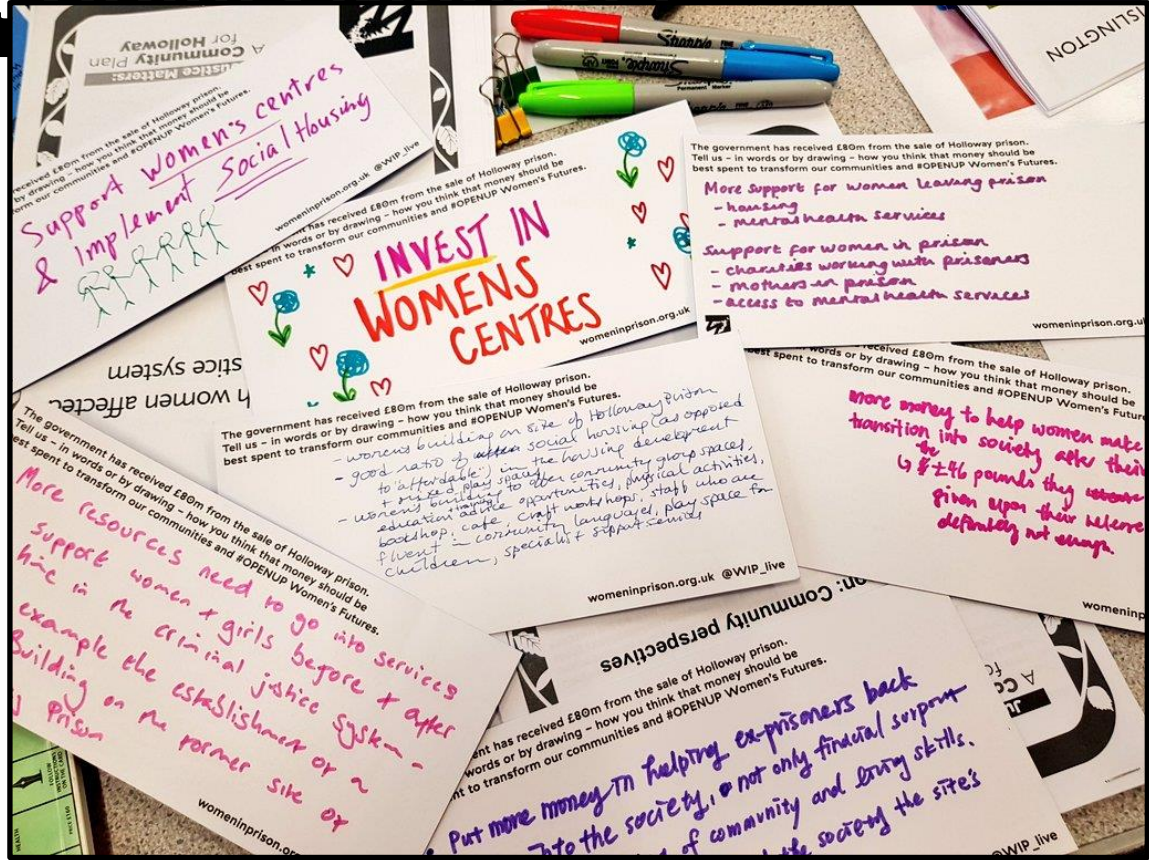 A Community Plan
for Holloway
Justice Matters:
received £80m from the sale of Holloway prison.
by drawing – how you think that money should be
our communities and #OPENUP Women's Futures.
Support women's centres
& Implement Social Housing
womeninprison.org.uk @WIP_live
Sharpie
Sharpie
Permanent Marker
ISLINGTON
has received £80m from the sale of Holloway prison.
in words or by drawing – how you think that money should be
best spent to transform our communities and #OPENUP Women's Futures.
INVEST IN
WOMENS
CENTRES
womeninprison.org.uk
The government has received £80m from the sale of Holloway prison.
Tell us – in words or by drawing – how you think that money should be
best spent to transform our communities and #OPENUP Women's Futures.
More support for women leaving prison
- housing
- mental health services
Support for women in prison
- charities working with prisoners
- mothers in prison
- access to mental health services
womeninprison.org.u
h women affected
stice system
The government has received £80m from the sale of Holloway prison.
Tell us – in words or by drawing – how you think that money should be
best spent to transform our communities and #OPENUP Women's Futures.
- womens building on site of Holloway Prison
- good ratio of social housing (as opposed
to 'affordable') in the housing development
+ mixed play space
- womens building to offer community group spaces,
education advice training opportunities, physical activities,
bookshop, cafe, craft workshops, staff who are
fluent in community languages, play space for
children, specialist support services
womeninprison.org.uk @WIP_live
received £80m from the sale of Holloway prison.
words or by drawing – how you think that money should be
best spent to transform our communities and #OPENUP Women's Futur
more money to help women make
transition into society after their
the
↳ £46 pounds they
given upon their release
definitely not enough.
womeninp
The government has received £80m from the sale of Holloway prison.
Tell us – in words or by drawing – how you think that money should be
est spent to transform our communities and #OPENUP Women's Futures.
More resources need to go into services
support women + girls before + after
time in the criminal justice system -
example the establishment of a
Building on the former site of
Prison
womeninprison.or
on: Community perspectives
nt has received £80m from the sale of Holloway prison.
words or by drawing – how you think that money should be
nt to transform our communities and #OPENUP Women's Futures.
Put more money in helping ex-prisoners back
into the society, not only financial support
of community and living skills.
the society the site's
@WIP_live
FOLLOW
INSTRUCTIONS
ON THE CARD
HEALTH